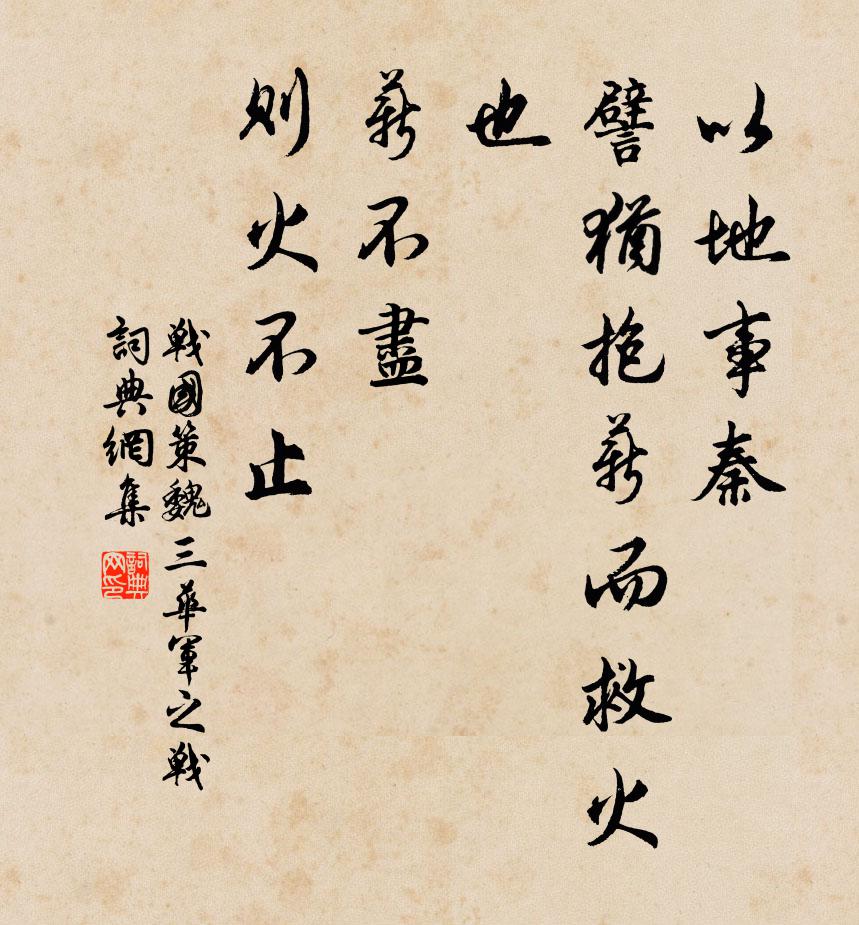 以地事秦
譬猶抱薪而救火
也
薪不盡
則火不止
戰國策魏三華軍之戰
詞典網集
詞典网印